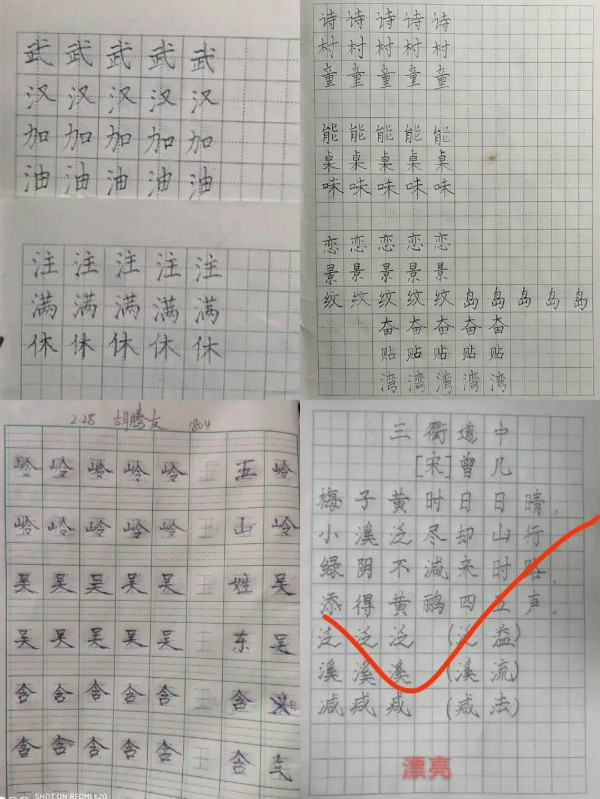 武武武武武
汉汉汉汉汉
加加加加加
油油油油油
注注注注注
满满满满满
休休休休休
诗诗诗诗诗
村村村村村
童童童童童
能能能能能
桌桌桌桌桌
味味味味味
恋恋恋恋恋
景景景景景
纹纹纹纹纹岛岛岛岛岛
奋奋奋奋奋
贴贴贴贴贴
湾湾湾湾湾
2.28 胡腾友 1804
岭岭岭岭岭王五岭
岭岭岭岭岭王山岭
吴吴吴吴吴王姓吴
吴吴吴吴吴王东吴
含含含含含王含
含含含含含王含气
SHOT ON REDMI K20
三衢道中
[宋]曾几
梅子黄时日日晴，
小溪泛尽却山行
绿阴不减来时路，
添得黄鹂四五声。
泛泛泛（泛益）
溪溪溪（溪流）
减减减（减法）
漂亮